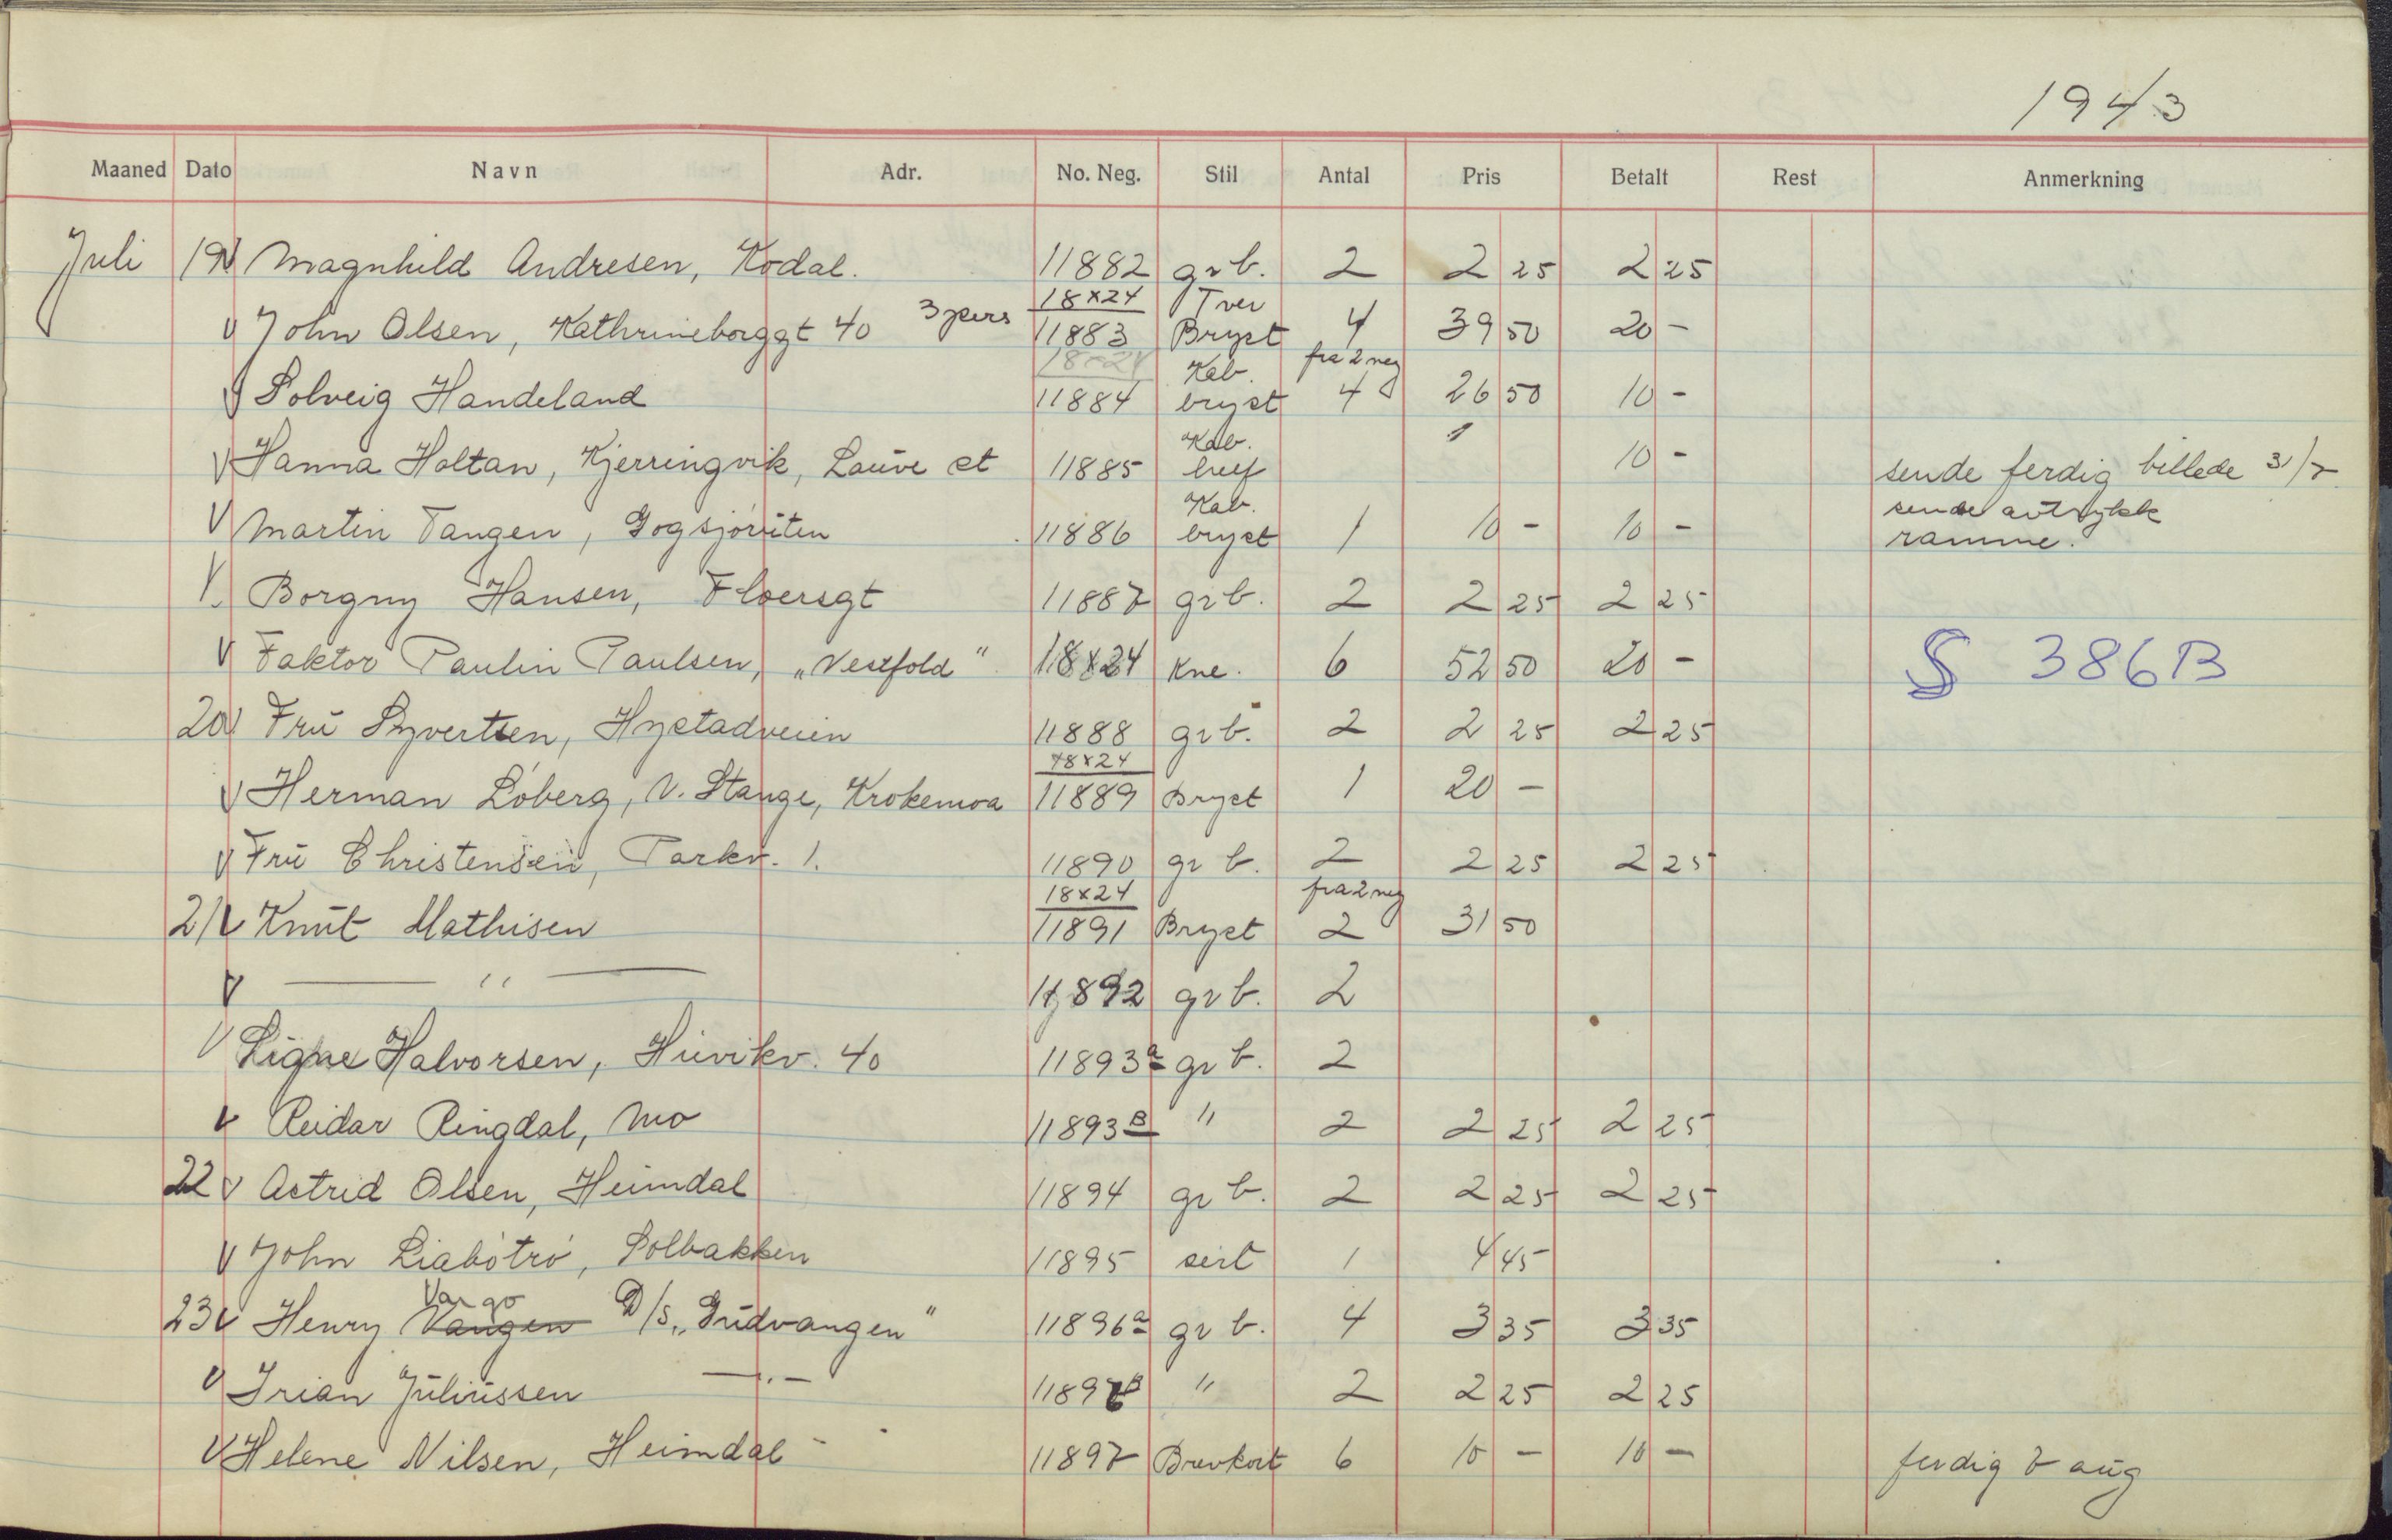 1943
Maaned Dato Navn Adr. No. Neg. Stil Antal Pris Betalt Rest Anmerkning
Juli 19 V Magnhild Andresen, Kodal. 11882 gr b. 2 2 25 2 25
18x24 Tver
V John Olsen, Kathrineborggt 40 3 pers 11883 Bryst 4 39 50 20 -
18x24 Kab. fra 2 neg
V Solveig Handeland 11884 bryst 4 26 50 10 -
Kab.
V Hanna Holtan, Kjerringvik, Lauve st 11885 10 - sende ferdig billede 31/7
Kab. sende avtrykk
V Martin Tangen, Gogsjøruten 11886 bryst 1 10 - 10 - ramme.
V. Borgny Hansen, Floersgt 11887 gr b. 2 2 25 2 25
V Faktor Paulin Paulsen, „Vestfold" 18x24 Kne. 6 52 50 20 - S 386B
20 V Fru Syvertsen, Hystadveien 11888 gr b. 2 2 25 2 25
18x24
V Herman Løberg, N. Stange, Krokemoa 11889 Bryst 1 20 -
V Fru Christensen, Parkv. 1. 11890 gr b. 2 2 25 2 25
18x24 fra 2 neg
21 V Knut Mathisen 11891 Bryst 2 31 50
V — " — 11892 gr b. 2
V Signe Halvorsen, Huvikv. 40 11893 a gr b. 2
V Reidar Ringdal, Mo 11893 B " 2 2 25 2 25
22 V Astrid Olsen, Heimdal 11894 gr b. 2 2 25 2 25
V John Liabøtrø, Solbakken 11895 sert 1 4 45
Vargo
23 V Henry Vangen D/S „Gudvangen" 11896 a gr b. 4 3 35 3 35
V Irian Juliussen — " — 11896 B " 2 2 25 2 25
V Helene Nilsen, Heimdal 11897 Brevkort 6 10 - 10 - ferdig 7 aug